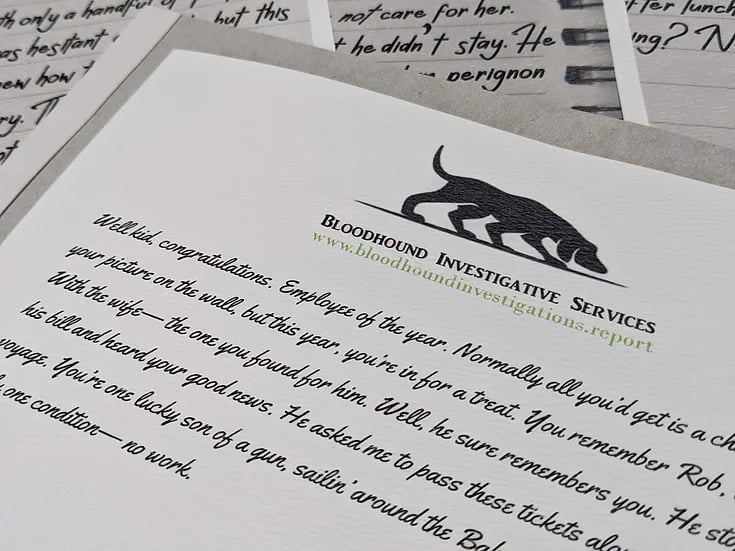 th only a handful of
but this
as hesitant
ew how t
ry.
not care for her.
t he didn't stay. He
perignon
fter lunch
ng? N
BLOODHOUND INVESTIGATIVE SERVICES
www.bloodhoundinvestigations.report
Well kid, congratulations. Employee of the year. Normally all you'd get is a ch
your picture on the wall, but this year, you're in for a treat. You remember Rob,
With the wife—the one you found for him. Well, he sure remembers you. He sto
his bill and heard your good news. He asked me to pass these tickets alo
voyage. You're one lucky son of a gun, sailin' around the Ba
one condition—no work.